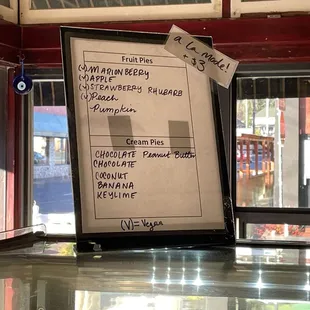 a la mode!
+ $3
Fruit Pies
(V) MARIONBERRY
(V) APPLE
(V) STRAWBERRY RHUBARB
(V) Peach
- Pumpkin
Cream Pies
CHOCOLATE Peanut Butter
CHOCOLATE
COCONUT
BANANA
KEYLIME
(V) = Vegan